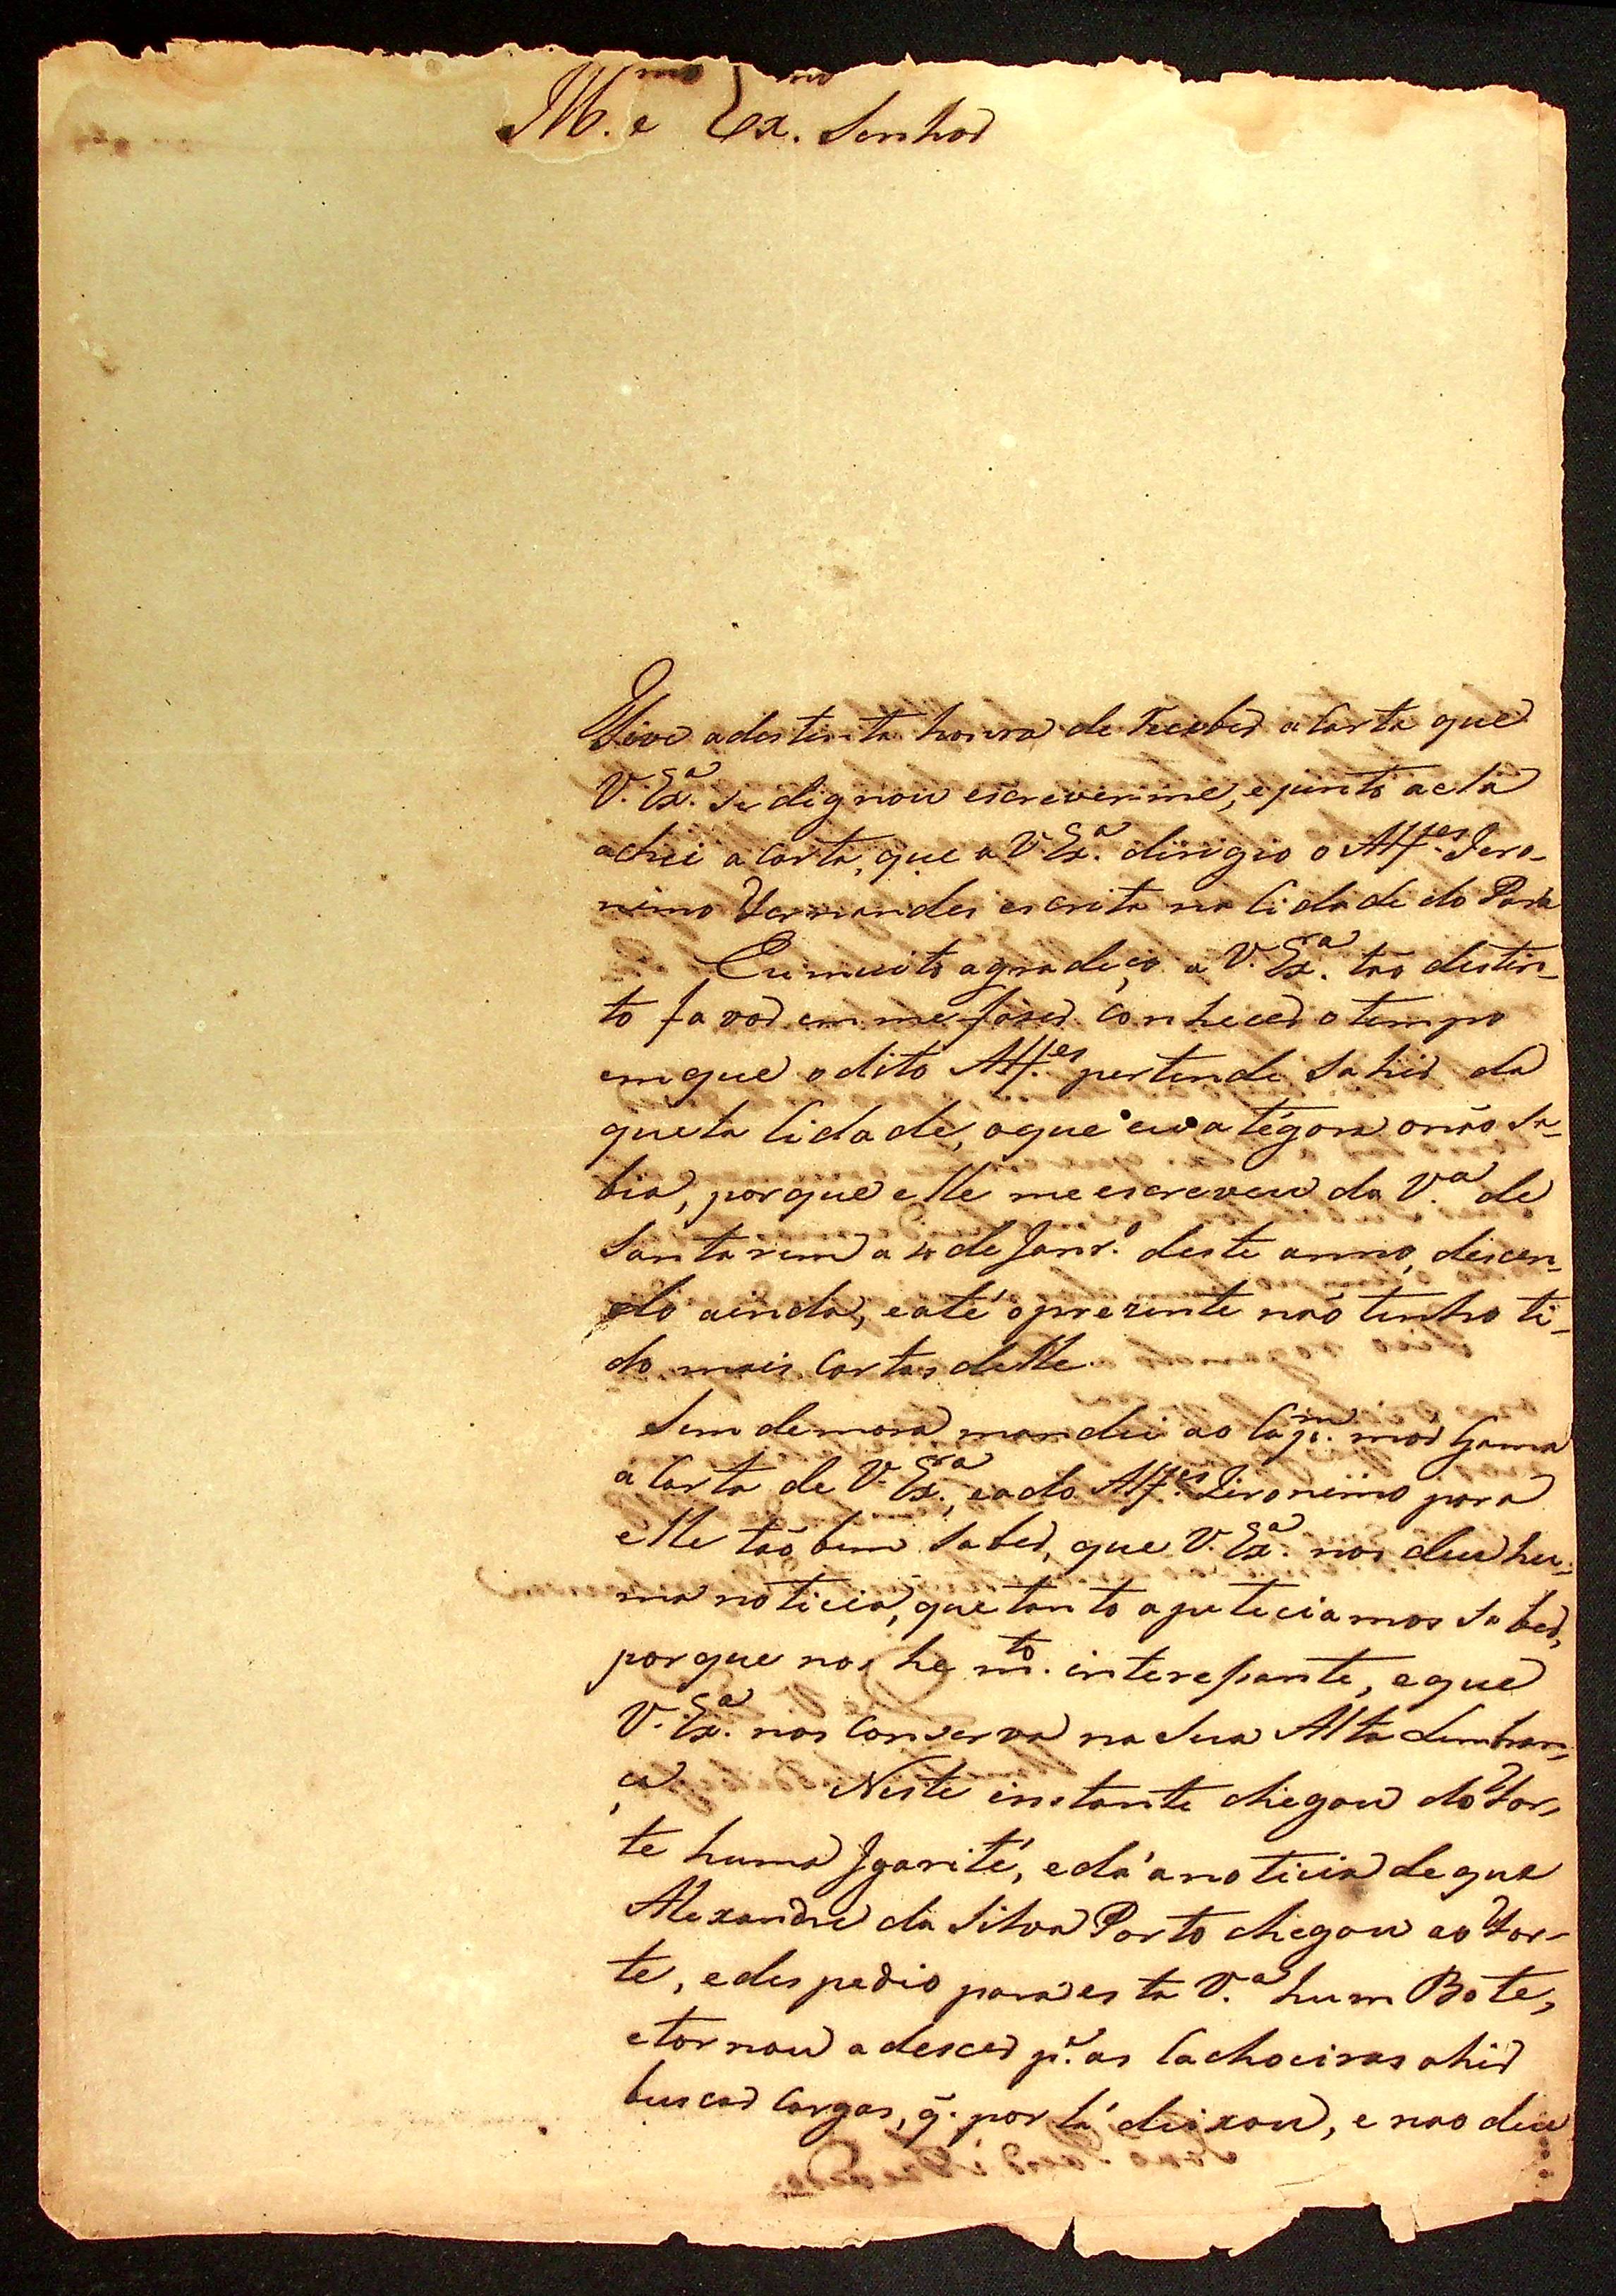 Ill.mo e Ex.mo Senhor
Tive adestinta honra de receber a Carta que
V. Ex.a se dignou escreverme, e junto aella
achei a Carta, que a V. Ex.a dirigio o Alf.es Jero-
nimo Fernandes escrita na Cidade do Pará
Eu muito agradeço a V. Ex.ra tão destin-
to favor em me faser conhecer o tempo
emque o dito Alf.es pertende sahir da
quela Cidade, oque eu atégora onão sa-
bia, porque elle me escreveu da V.a de
Santarem a 4 de Janr.o deste anno, descen-
do ainda, e até oprezente não tenho ti-
do mais Cartas delle.
Sem demora mandei ao Cap.m mór Gama
a Carta de V. Ex.ra, eado Alf.es Jeronimo para
elle tãobem saber, que V. Ex.a nos deu hu-
ma noticia, que tanto apeteciamos saber,
porque nos he m.to interessante, eque
V. Ex.a nos Conserva na Sua Alta Lembran-
ça Neste instante chegou do For-
te huma Igarité, edá anoticia deque
Alexandre da Silva Porto chegou ao For-
te, edespedio para esta V.a hum Bote,
etornou adescer p.a as Cachoeiras ahir
buscar Cargas, q̃. por lá deixou, e nao deu